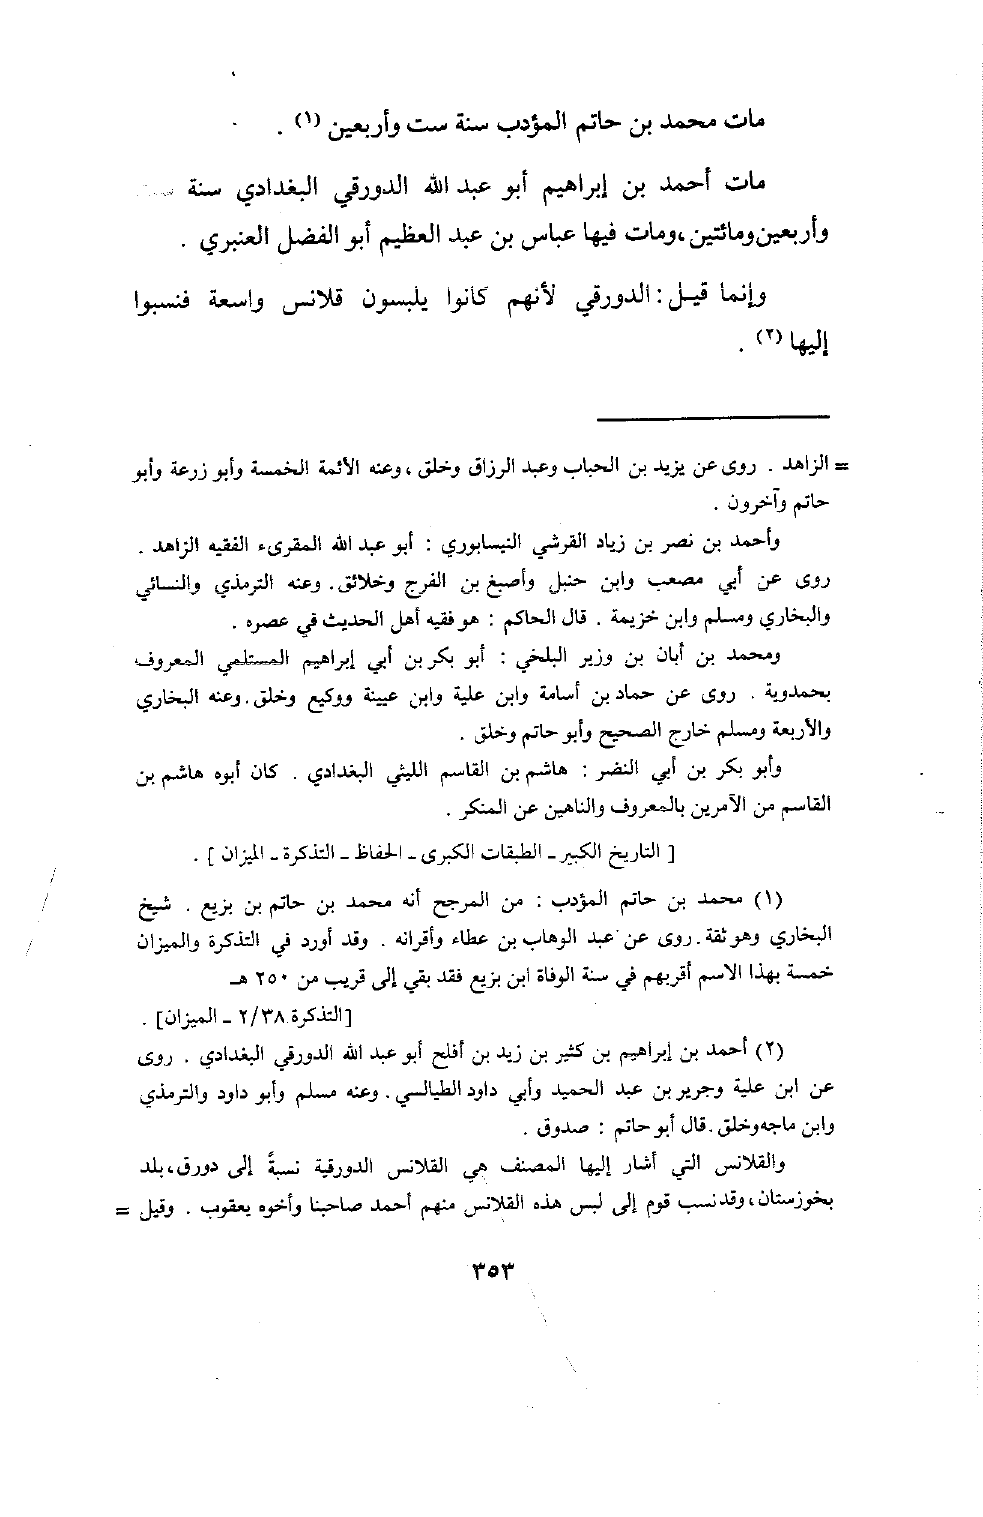 مات محمد بن حاتم المؤدب سنة ست وأربعين (١) .
مات أحمد بن إبراهيم أبو عبد الله الدورقي البغدادي سنة ست
وأربعين ومائتين ، ومات فيها عباس بن عبد العظيم أبو الفضل العنبري .
وإنما قيل : الدورقي لأنهم كانوا يلبسون قلانس واسعة فنسبوا
إليها (٢) .
= الزاهد . روى عن يزيد بن الحباب وعبد الرزاق وخلق ، وعنه الأئمة الخمسة وأبو زرعة وأبو
حاتم وآخرون .
وأحمد بن نصر بن زياد القرشي النيسابوري : أبو عبد الله المقرىء الفقيه الزاهد .
روى عن أبي مصعب وابن حنبل وأصبغ بن الفرج وخلائق . وعنه الترمذي والنسائي
والبخاري ومسلم وابن خزيمة . قال الحاكم : هو فقيه أهل الحديث في عصره .
ومحمد بن أبان بن وزير البلخي : أبو بكر بن أبي إبراهيم المستلمي المعروف
بحمدوية . روى عن حماد بن أسامة وابن علية وابن عيينة ووكيع وخلق . وعنه البخاري
والأربعة ومسلم خارج الصحيح وأبو حاتم وخلق .
وأبو بكر بن أبي النضر : هاشم بن القاسم الليثي البغدادي . كان أبوه هاشم بن
القاسم من الآمرين بالمعروف والناهين عن المنكر .
[ التاريخ الكبير ـ الطبقات الكبرى ـ الحفاظ ـ التذكرة ـ الميزان ] .
(١) محمد بن حاتم المؤدب : من المرجح أنه محمد بن حاتم بن بزيع . شيخ
البخاري وهو ثقة . روى عن عبد الوهاب بن عطاء وأقرانه . وقد أورد في التذكرة والميزان
خمسة بهذا الاسم أقربهم في سنة الوفاة ابن بزيع فقد بقي إلى قريب من ٢٥٠ هـ
[التذكرة ٢/٣٨ ـ الميزان] .
(٢) أحمد بن إبراهيم بن كثير بن زيد بن أفلح أبو عبد الله الدورقي البغدادي . روى
عن ابن علية وجرير بن عبد الحميد وأبي داود الطيالسي . وعنه مسلم وأبو داود والترمذي
وابن ماجه وخلق . قال أبو حاتم : صدوق .
والقلانس التي أشار إليها المصنف هي القلانس الدورقية نسبةً إلى دورق ، بلد
بخوزستان ، وقد نسب قوم إلى لبس هذه القلانس منهم أحمد صاحبنا وأخوه يعقوب . وقيل =
٣٥٣